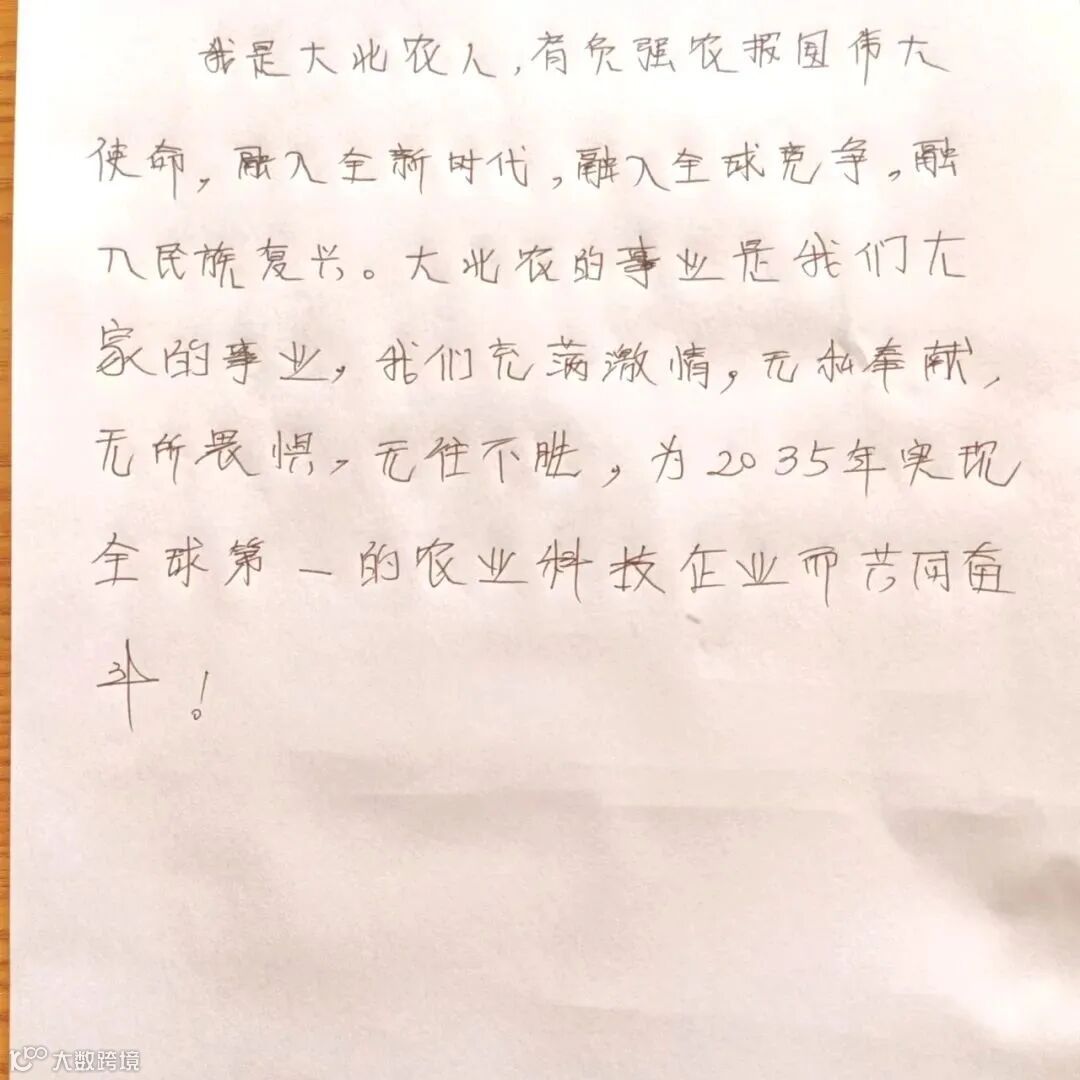 我是大北农人,有负强农报国伟大
使命,融入全新时代,融入全球竞争,融
入民族复兴。大北农的事业是我们大
家的事业,我们充满激情,无私奉献,
无所畏惧,无往不胜,为2035年实现
全球第一的农业科技企业而共同奋
斗!
大数跨境